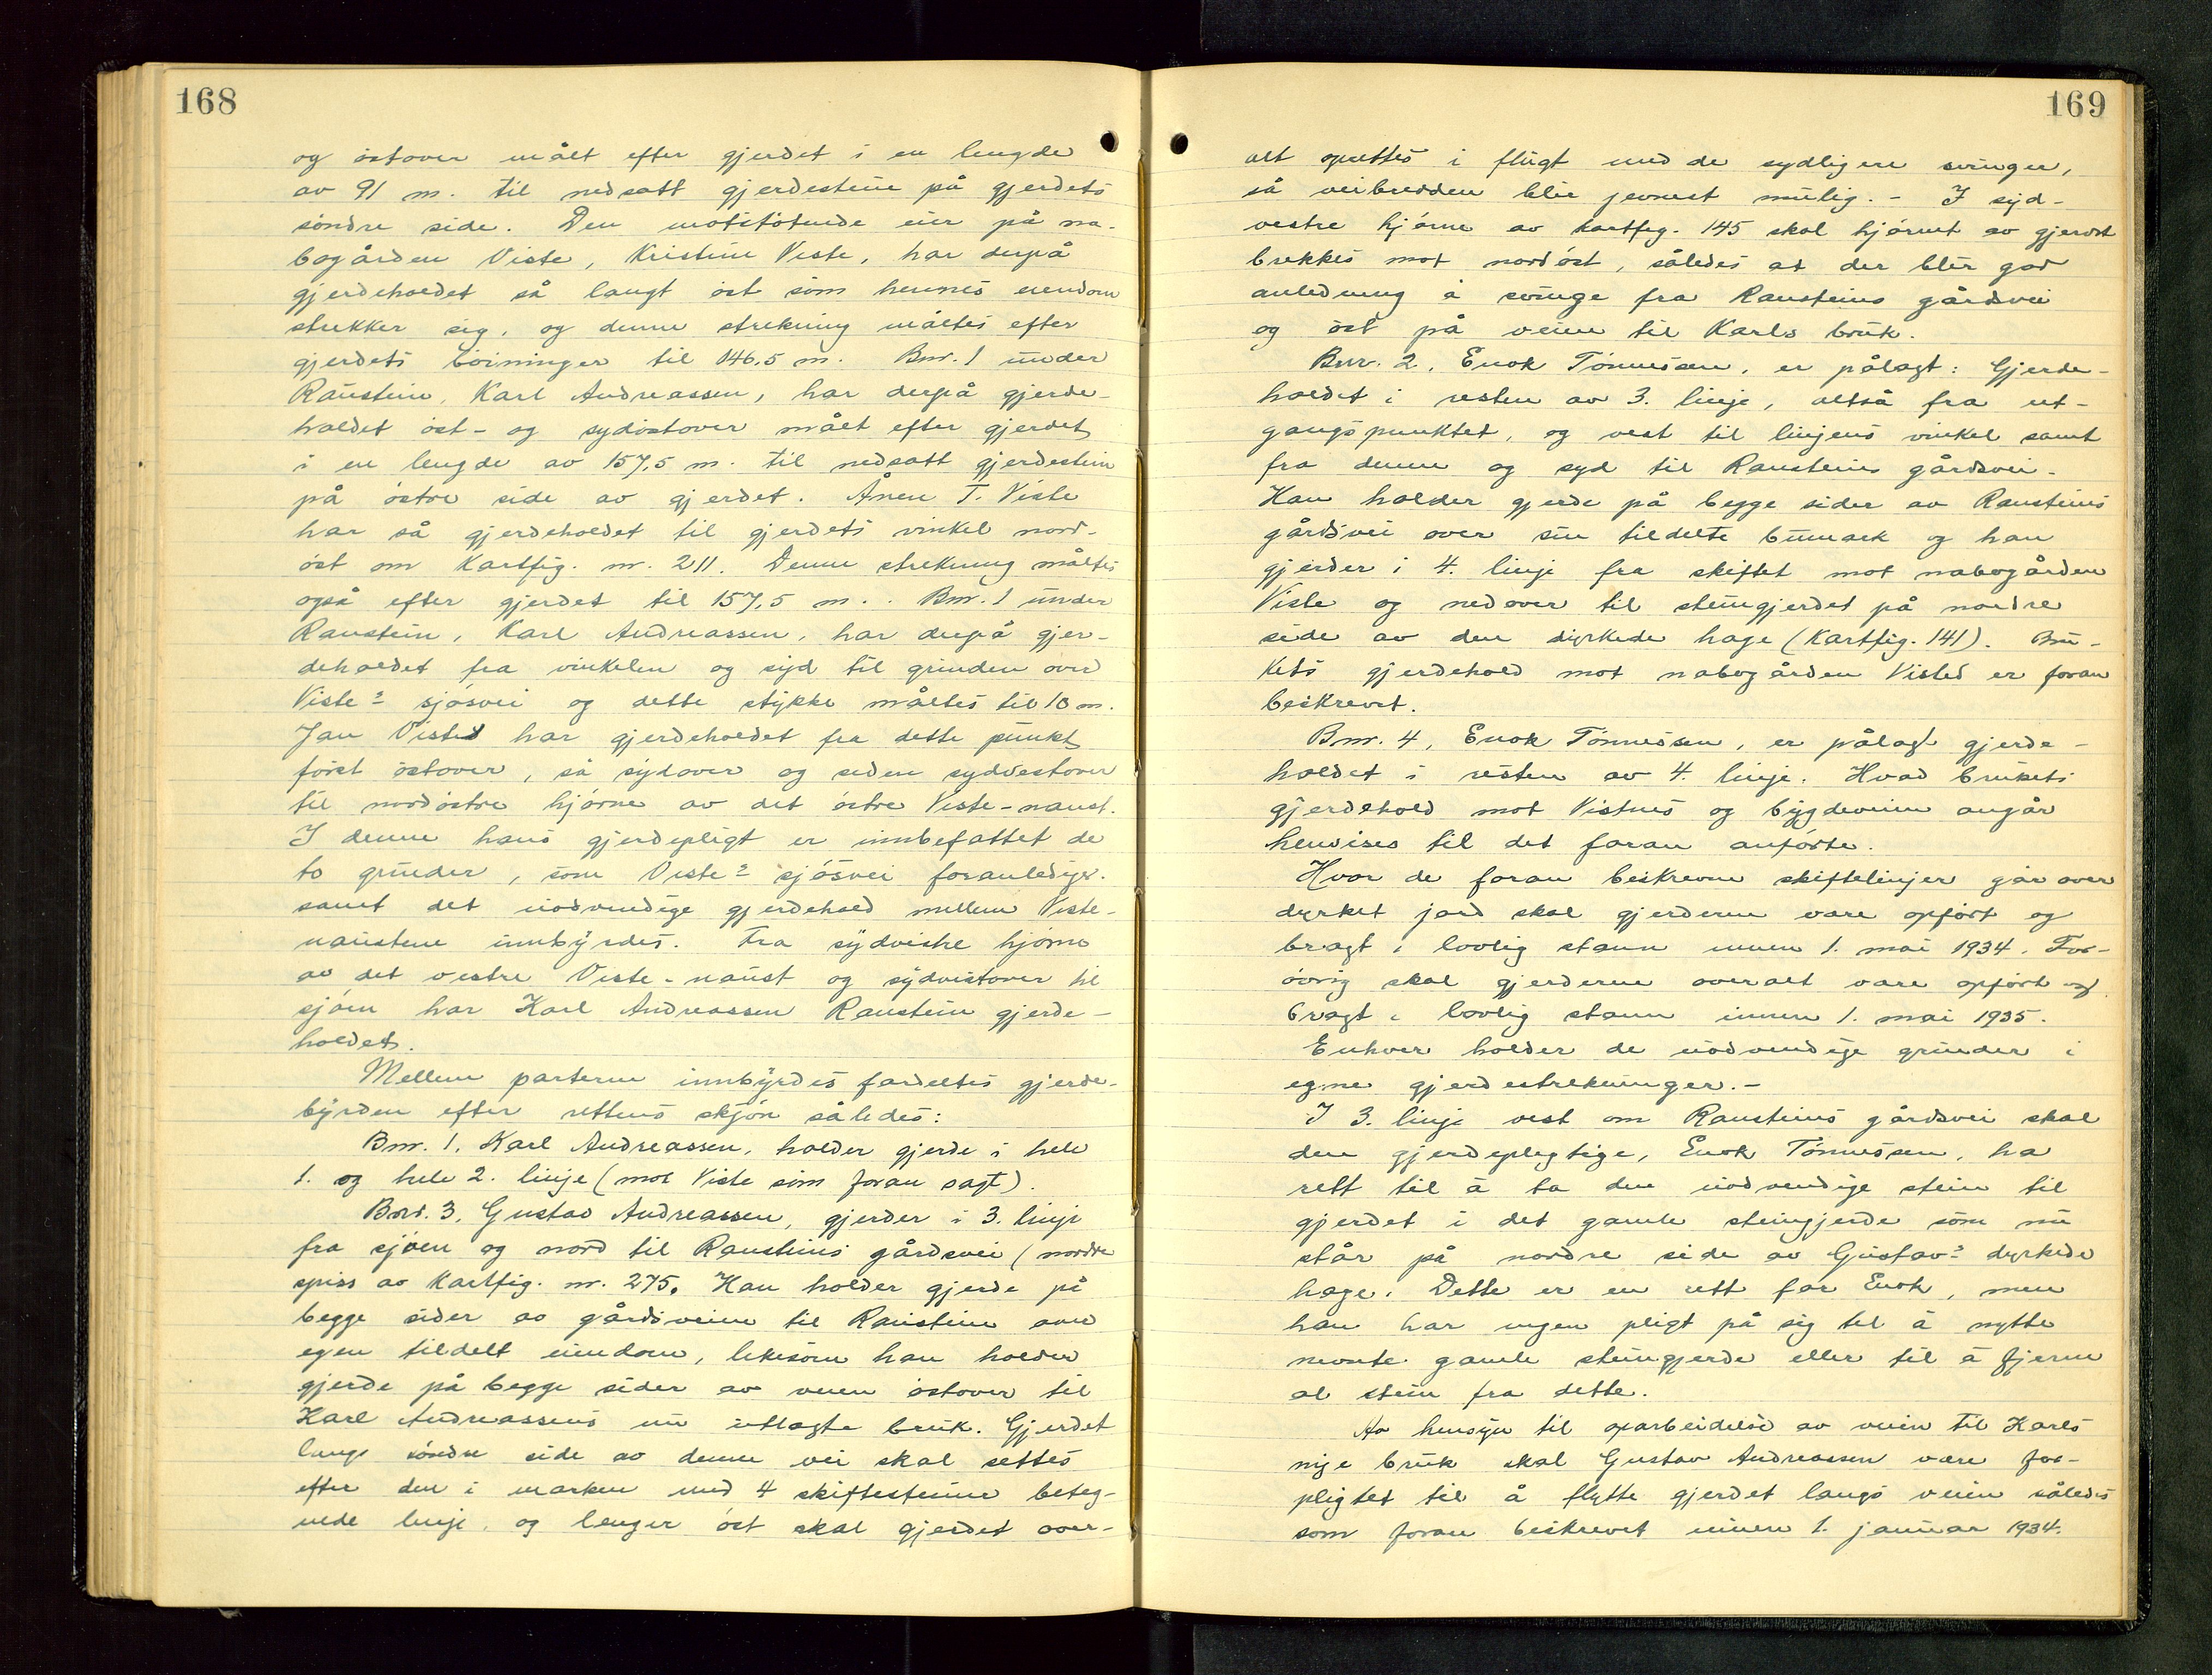 168
og östover målt efter gjerdet i en lengde
av 91 m. til nedsatt gjerdestein på gjerdets
söndre side. Den motstötende eier på na-
bogården Viste, Kristine Viste, har derpå
gjerdeholdet så langt öst som hennes eiendom
strekker sig, og denne strekning måltes efter
gjerdets böininger til 146,5 m. Bnr. 1 under
Raustein, Karl Andreassen, har derpå gjerde-
holdet öst- og sydöstover målt efter gjerdet
i en lengde av 157,5 m. til nedsatt gjerdestein
på östre side av gjerdet. Ånen T. Viste
har så gjerdeholdet til gjerdets vinkel nord-
öst om Kartfig. nr. 211. Denne strekning måltes
også efter gjerdet til 157,5 m.. Bnr. 1 under
Raustein, Karl Andreassen, har derpå gjer-
deholdet fra vinkelen og syd til grinden over
Viste's sjösvei og dette stykke måltes til 10 m.
Jan Visted har gjerdeholdet fra dette punkt
först östover, så sydover og siden sydvestover
til nordöstre hjörne av det östre Viste-naust.
I denne hans gjerdepligt er innbefattet de
to grinder, som Viste's sjösvei foranlediger.
samt det nödvendige gjerdehold mellem Viste-
naustene innbyrdes. Fra sydvestre hjörne
av det vestre Viste-naust og sydvestover til
sjöen har Karl Andreassen Raustein gjerde-
holdet.
Mellem parterne innbyrdes fordeltes gjerde-
byrden efter rettens skjön således:
Bnr. 1, Karl Andreassen, holder gjerde i hele
1. og hele 2. linje (mot Viste som foran sagt).
Bnr. 3, Gustav Andreassen, gjerder i 3. linje
fra sjöen og nord til Rausteins gårdsvei (nordre
spiss av Kartfig. nr. 275. Han holder gjerde på
begge sider av gårdsveien til Raustein over
egen tildelt eiendom, likesom han holder
gjerde på begge sider av veien östover til
Karl Andreassens nu utlagte bruk. Gjerdet
langs söndre side av denne vei skal settes
efter den i marken med 4 skiftesteine beteg-
nede linje, og lenger öst skal gjerdet over-
169
alt opsettes i flugt med de sydligere svinger,
så veibredden blir jevnest mulig. - I syd-
vestre hjörne av kartfig. 145 skal hjörnet av gjerdet
brekkes mot nordöst, således at der blir god
anledning å svinge fra Rausteins gårdsvei
og öst på veien til Karls bruk.
Bnr. 2, Enok Tönnessen, er pålagt: Gjerde-
holdet i resten av 3. linje, altså fra ut-
gangspunktet, og vest til linjens vinkel samt
fra denne og syd til Rausteins gårdsvei.
Han holder gjerde på begge sider av Rausteins
gårdsvei over sin tildelte bumark og han
gjerder i 4. linje fra skiftet mot nabogården
Viste og nedover til steingjerdet på nordre
side av den dyrkede hage (Kartfig. 141). Bru-
kets gjerdehold mot nabogården Visted er foran
beskrevet.
Bnr. 4, Enok Tönnessen, er pålagt gjerde-
holdet i resten av 4. linje. Hvad brukets
gjerdehold mot Vistnes og bygdeveien angår
henvises til det foran anförte.
Hvor de foran beskrevne skiftelinjer går over
dyrket jord skal gjerderne være opfört og
bragt i lovlig stann innen 1. mai 1934. For-
övrig skal gjerderne overalt være opfört og
bragt i lovlig stann innen 1. mai 1935.
Enhver holder de nödvendige grinder i
egne gjerdestrekninger. -
I 3. linje vest om Rausteins gårdsvei skal
den gjerdepligtige, Enok Tönnessen, ha
rett til å ta den nödvendige stein til
gjerdet i det gamle steingjerde som nu
står på nordre side av Gustav's dyrkede
hage. Dette er en rett for Enok, men
han har ingen pligt på sig til å nytte
nevnte gamle steingjerde eller til å fjerne
al stein fra dette.
Av hensyn til oparbeidelse av veien til Karls
nye bruk skal Gustav Andreassen være for-
pligtet til å flytte gjerdet langs veien således
som foran beskrevet innen 1. januar 1934.